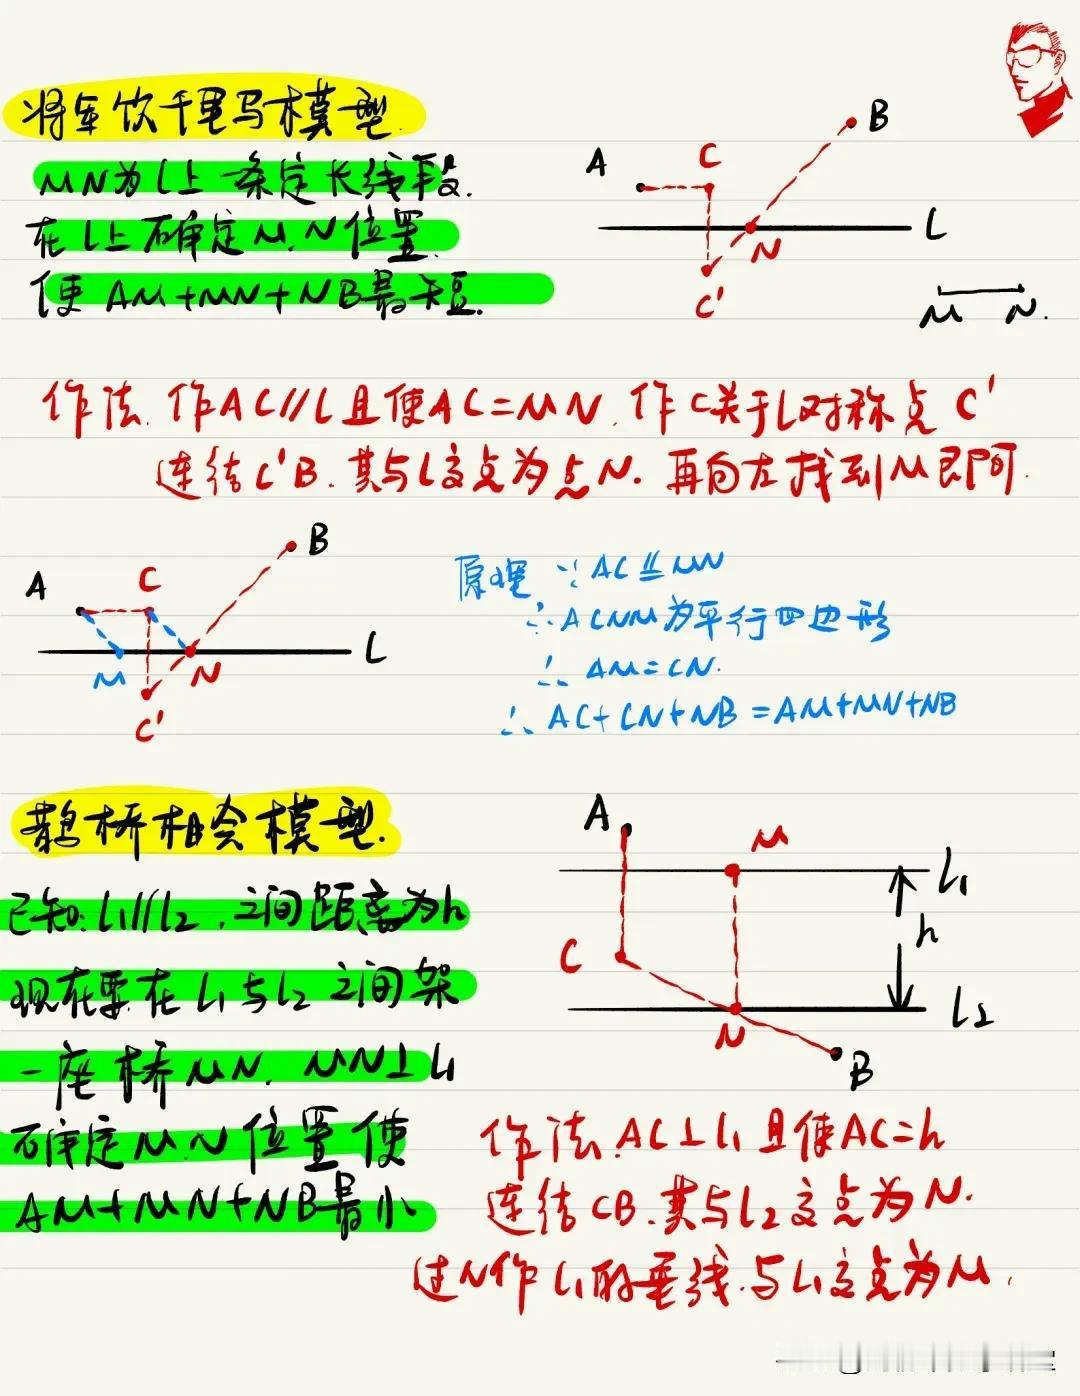 将军饮千里马模型.
MN为l上一条定长线段.
在l上确定M、N位置.
使AM+MN+NB最短.
A
C
B
L
N
C'
M N.
作法.作AC//L且使AC=MN.作C关于L对称点C'
连结C'B.其与L交点为点N.再向左找到M即可.
A
C
B
L
M
N
C'
原理 ∵AC⫽MN
∴ACNM为平行四边形
∴AM=CN.
∴AC+CN+NB=AM+MN+NB
鹊桥相会模型.
已知:l1//l2,之间距离为h
现在要在l1与l2之间架
一座桥MN.MN⊥l1
确定M.N位置使
AM+MN+NB最小
A
M
L1
C
h
N
L2
B
作法.AC⊥l1且使AC=h
连结CB.其与l2交点为N.
过N作l1的垂线.与l1交点为M.